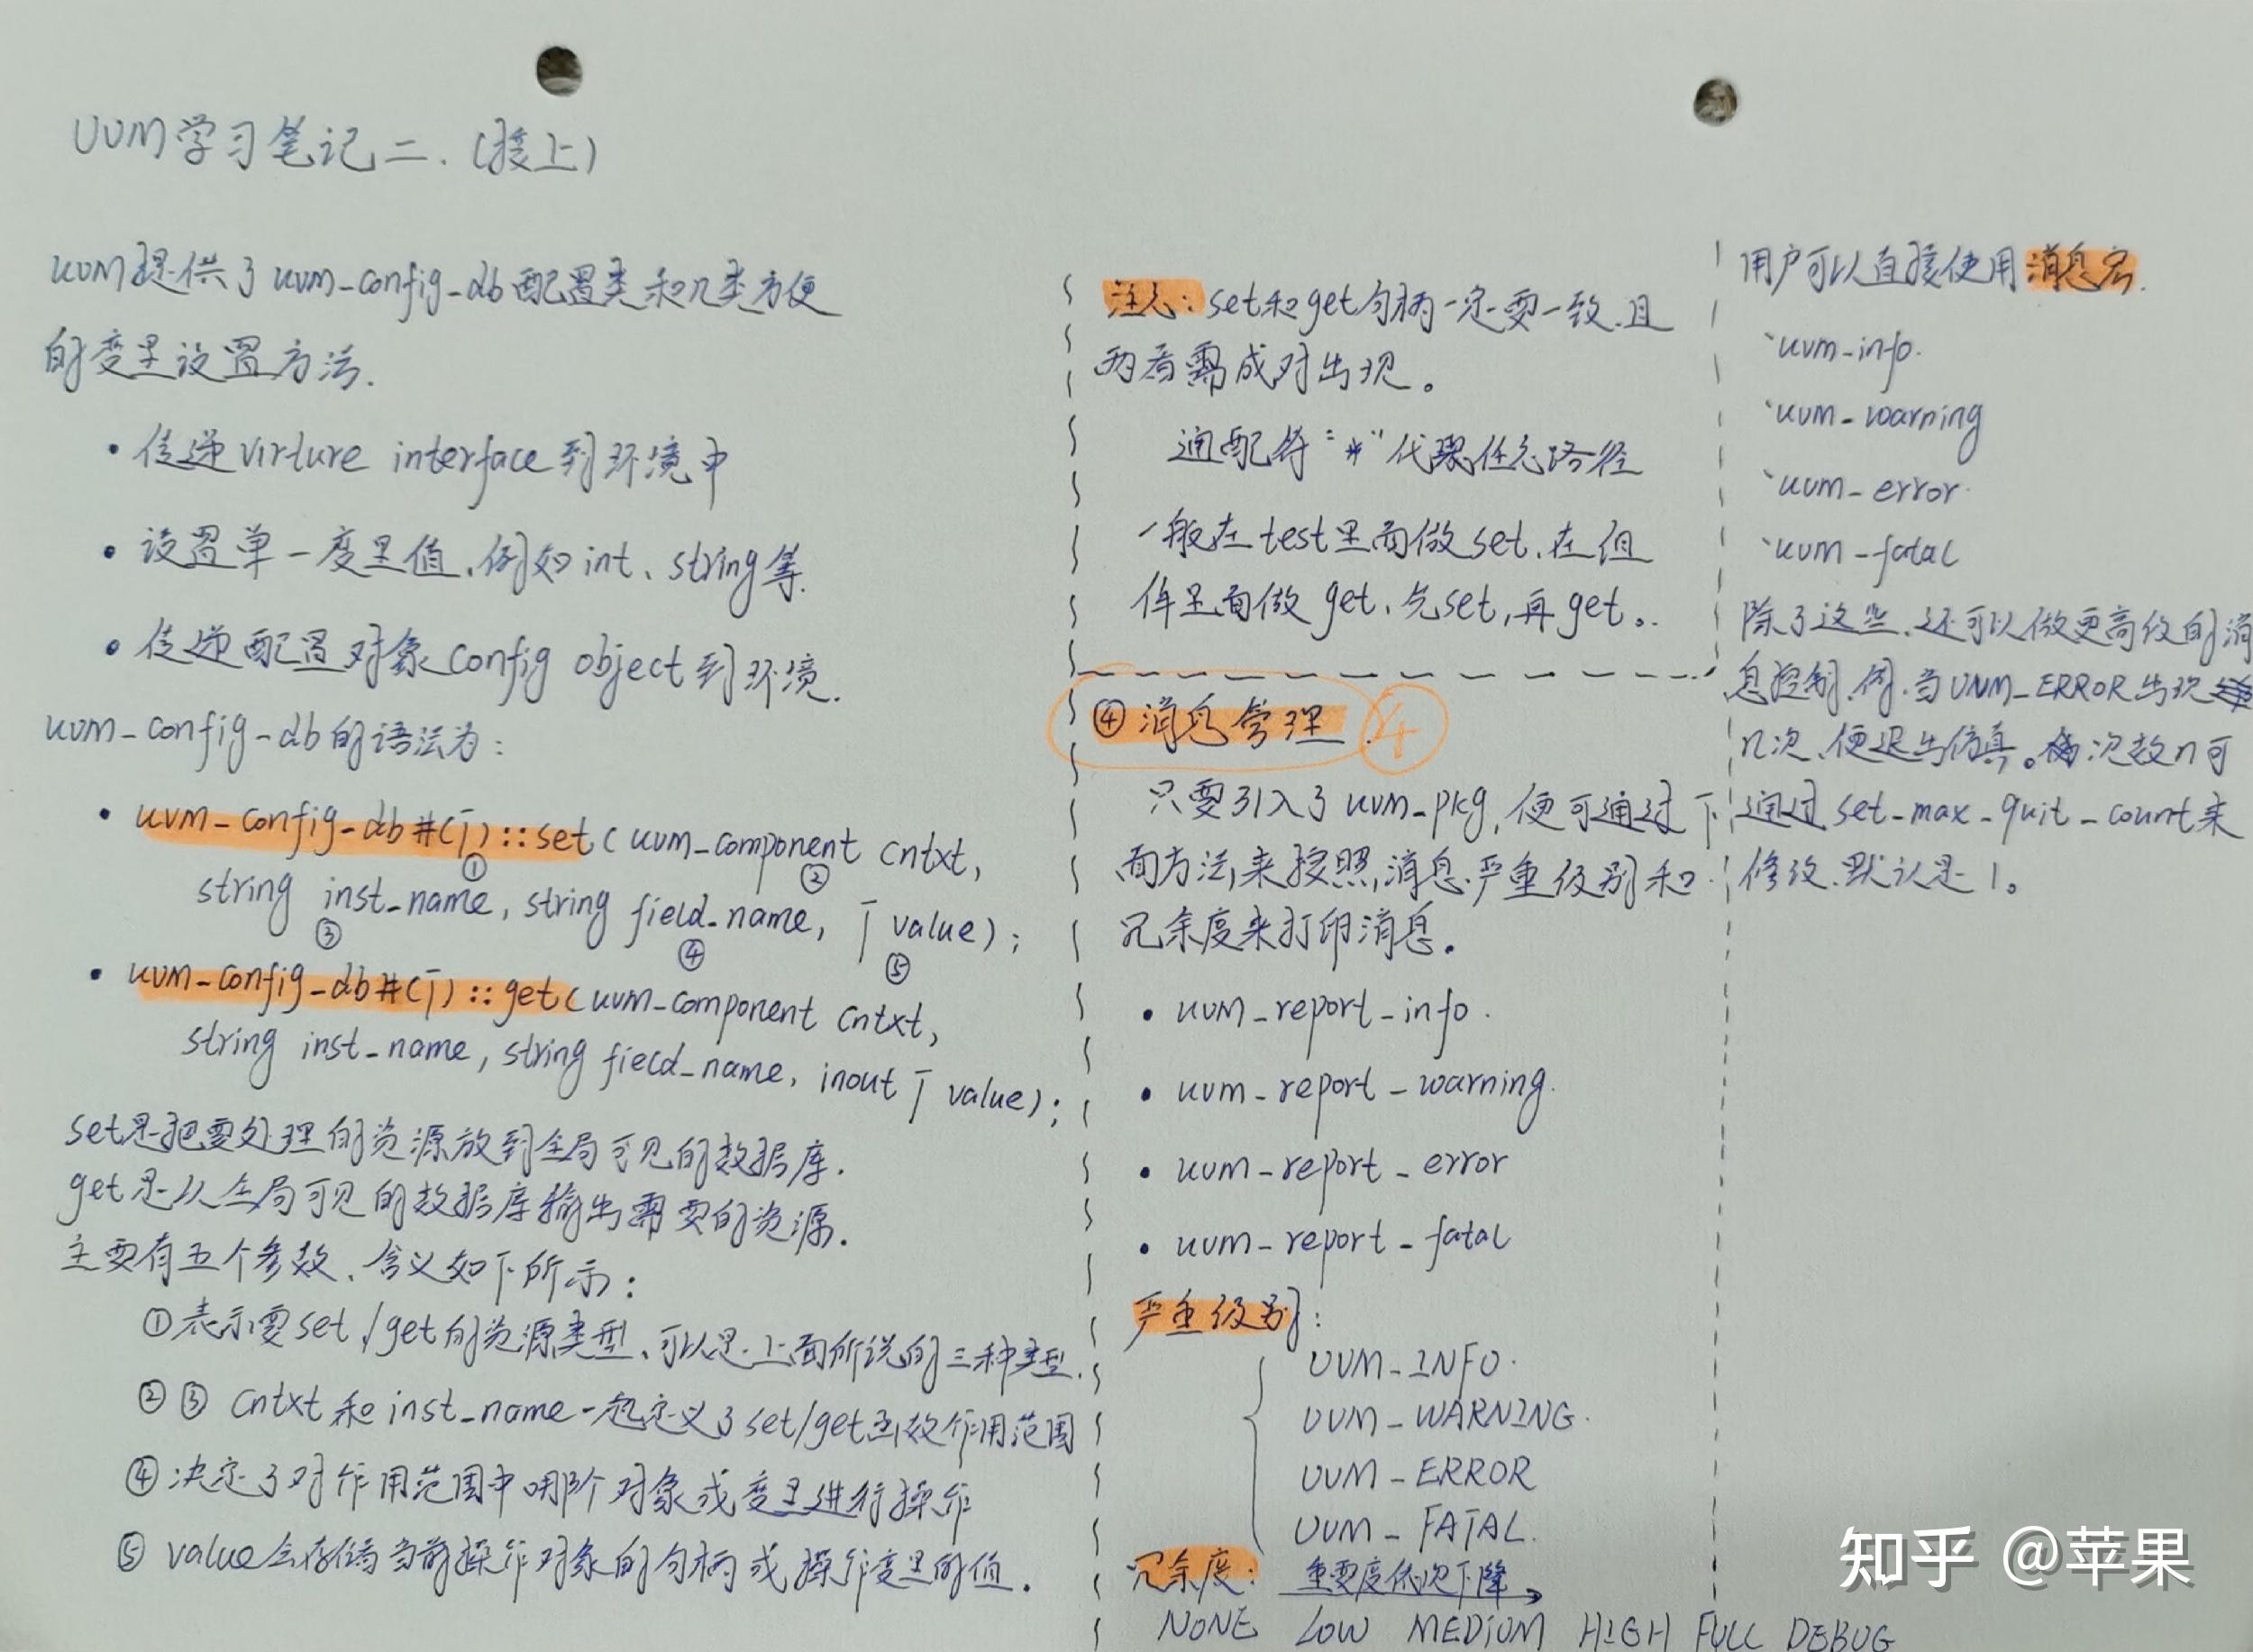 UVM学习笔记二.（接上）
uvm提供了uvm_config_db配置类和几类方便
的变量设置方法.
• 传递virture interface到环境中
• 设置单一变量值、例如int、string等.
• 传递配置对象config object到环境.
uvm_config_db的语法为：
• uvm_config_db#(T)::set(uvm_component cntxt,
① ②
string inst_name, string field_name, T value);
③ ④ ⑤
• uvm_config_db#(T)::get(uvm_component cntxt,
string inst_name, string field_name, inout T value);
set是把要处理的资源放到全局可见的数据库.
get是从全局可见的数据库输出需要的资源.
主要有五个参数、含义如下所示：
①表示要set/get的资源类型、可以是上面所说的三种类型.
② ③ cntxt和inst_name一起定义了set/get函数作用范围
④ 决定了对作用范围中哪个对象或变量进行操作
⑤ value会存储当前操作对象的句柄或操作变量的值.
注意：set和get句柄一定要一致、且
两者需成对出现。
通配符"*"代表任意路径
一般在test里面做set、在组
件里面做get、先set,再get..
④ 消息管理. ④
只要引入了uvm_pkg,便可通过下
面方法,来按照,消息严重级别和
冗余度来打印消息.
• uvm_report_info.
• uvm_report_warning.
• uvm_report_error
• uvm_report_fatal
严重级别：
UVM_INFO.
UVM_WARNING.
UVM_ERROR
UVM_FATAL.
冗余度： 重要度依次下降
NONE LOW MEDIUM HIGH FULL DEBUG
用户可以直接使用消息宏.
`uvm_info.
`uvm_warning
`uvm_error.
`uvm_fatal
除了这些、还可以做更高级的消
息控制.例.当UNM_ERROR出现
n次、便退出仿真。次数n可
通过set_max_quit_count来
修改.默认是1。
知乎 @苹果